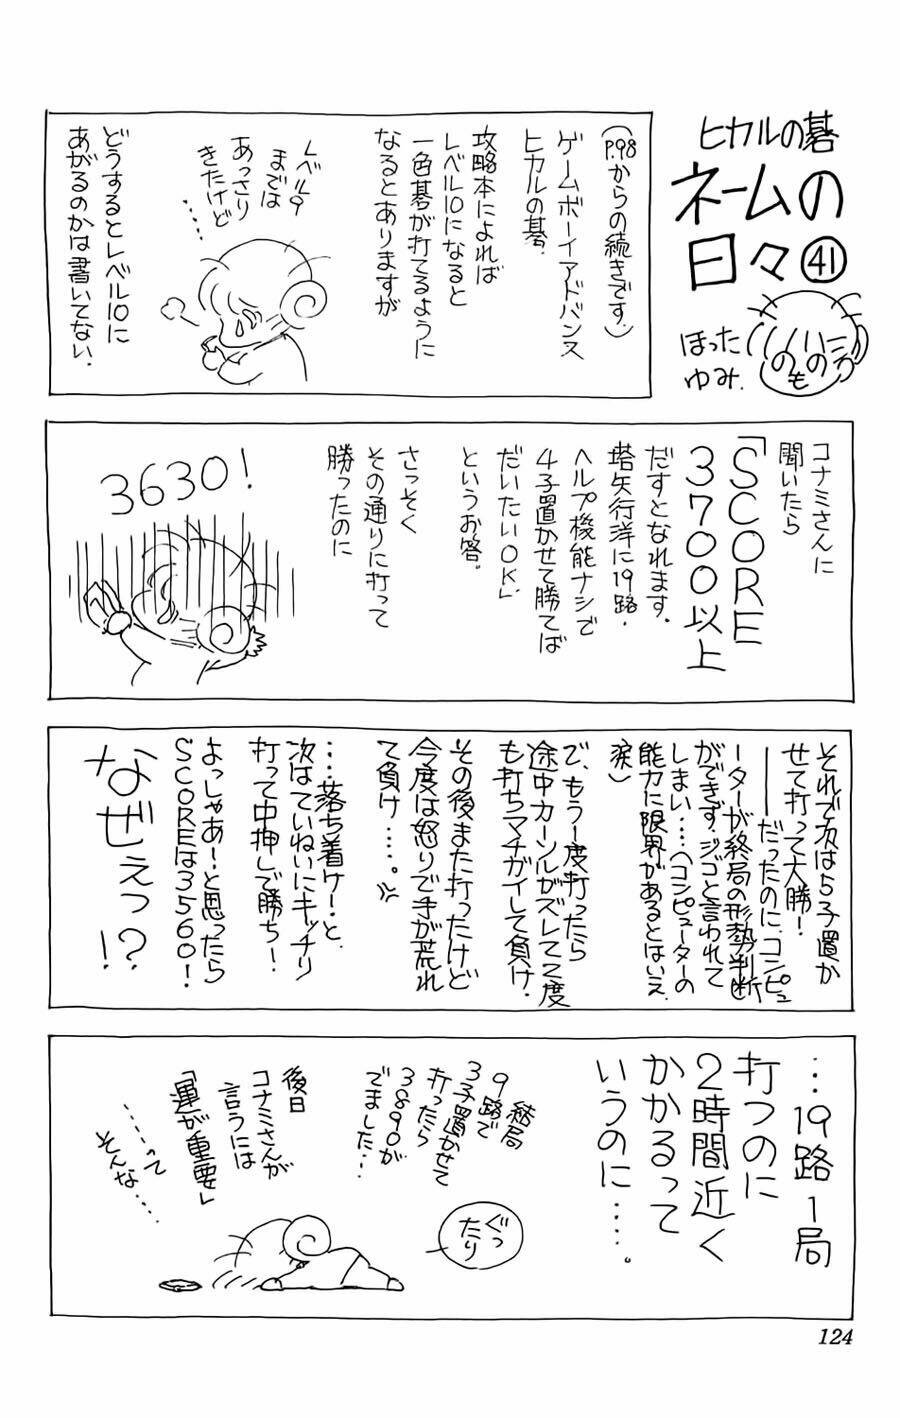 ヒカルの碁
ネームの
日々㊶
ほった
ゆみ.
(P.98からの続きです.)
ゲームボーイアドバンス
ヒカルの碁.
攻略本によれば
レベル10になると
一色碁が打てるように
なるとありますが
レベル9
までは
あっさり
きたけど
……
どうするとレベル10に
あがるのかは書いてない.
コナミさんに
聞いたら
「SCORE
3700以上
だすとなれます.
塔矢行洋に19路.
ヘルプ機能ナシで
4子置かせて勝てば
だいたいOK」
というお答.
さっそく
その通りに打って
勝ったのに
3630!
それで次は5子置か
せて打って大勝!
――だったのに、コンピュ
ーターが終局の形勢判断
ができず.ジゴと言われて
しまい……(コンピューターの
能力に限界があるとはいえ
涙)
で、もう1度打ったら
途中カーソルがズレて2度
も打ちマチガイして負け.
その後また打ったけど
今度は怒りで手が荒れ
て負け……。
……落ち着け!と、
次はていねいにキッチリ
打って中押しで勝ち!
よっしゃあ!と思ったら
SCOREは3560!
なぜぇっ
!?
…19路1局
打つのに
2時間近く
かかるって
いうのに……。
結局
9路で
3子置かせて
打ったら
3890が
でました…
ぐっ
たり
後日
コナミさんが
言うには
「運が重要」
……って
そんな……
124